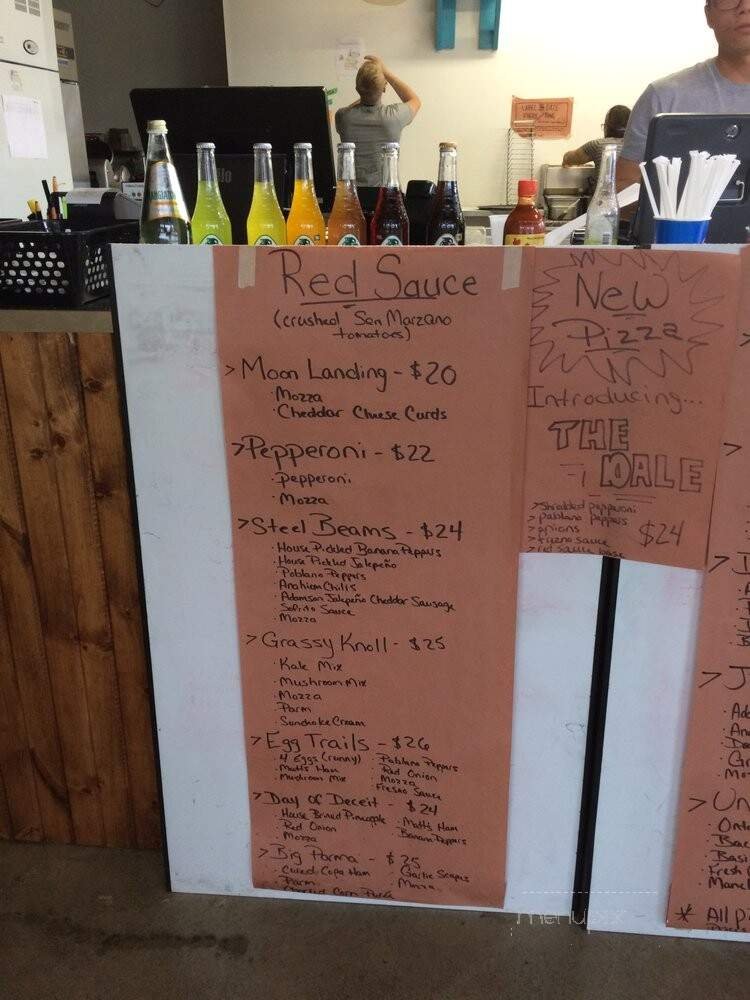 Red Sauce
(crushed San Marzano
tomatoes)
> Moon Landing - $20
· Mozza
· Cheddar Cheese Curds
> Pepperoni - $22
· Pepperoni
· Mozza
> Steel Beams - $24
· House Pickled Banana Peppers
· House Pickled Jalepeño
· Poblano Peppers
· Anahiem Chili's
· Adamson Jalepeño Cheddar Sausage
Sofrito Sauce
· Mozza
> Grassy Knoll - $25
· Kale Mix
· Mushroom Mix
· Mozza
· Parm
· Sunchoke Cream
> Egg Trails - $26
· 4 Eggs (runny)
· Matts Ham
· Mushroom Mix
· Pablano Peppers
· Red Onion
· Mozza
· Fresno Sauce
> Day Of Deceit - $24
· House Brined Pineapple
· Red Onion
· Mozza
· Matts Ham
· Banana Peppers
> Big Parma - $25
· Cured Copa Ham
· Parm
· Garlic Scapes
· Mozza
New
Pizza
Introducing...
THE
DALE
> Shredded pepperoni
> pablano peppers
> onions
> frezno sauce
> red sauce base
$24
* All
menupix